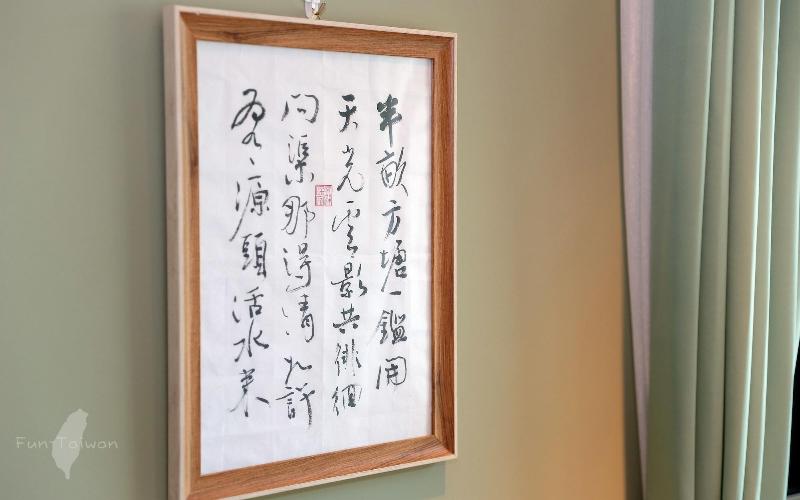 半畝方塘一鑑開
天光雲影共徘徊
問渠那得清如許
為有源頭活水來
FunTaiwan